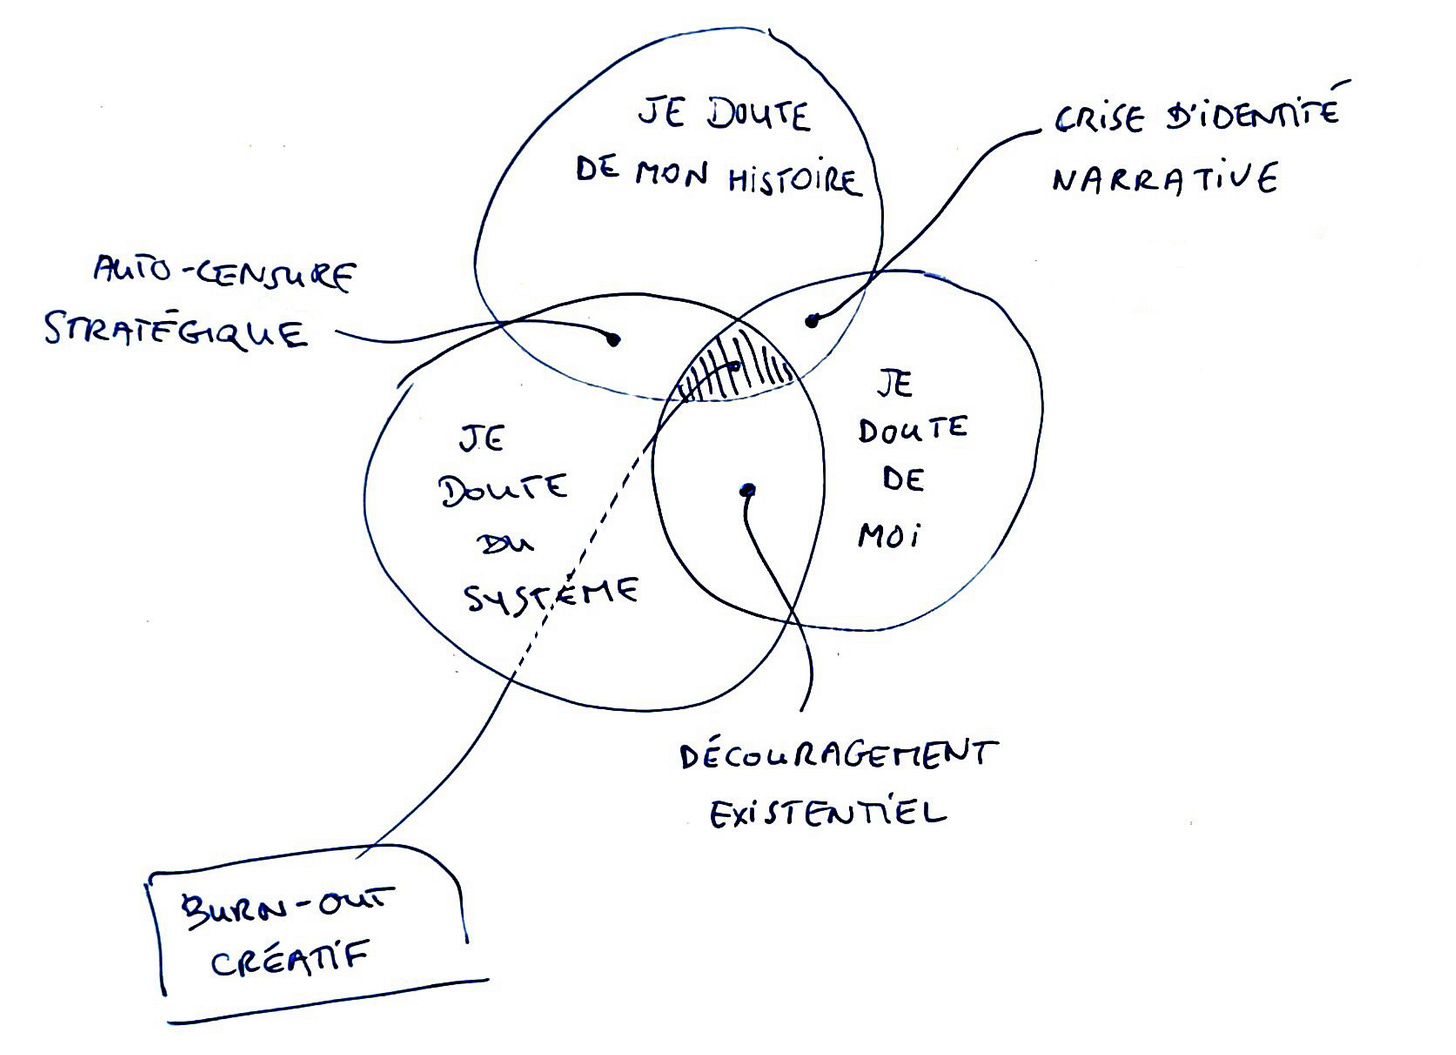 JE DOUTE
DE MON HISTOIRE
CRISE D'IDENTITÉ
NARRATIVE
AUTO-CENSURE
STRATÉGIQUE
JE
DOUTE
DU
SYSTÈME
JE
DOUTE
DE
MOI
DÉCOURAGEMENT
EXISTENTIEL
BURN-OUT
CRÉATIF